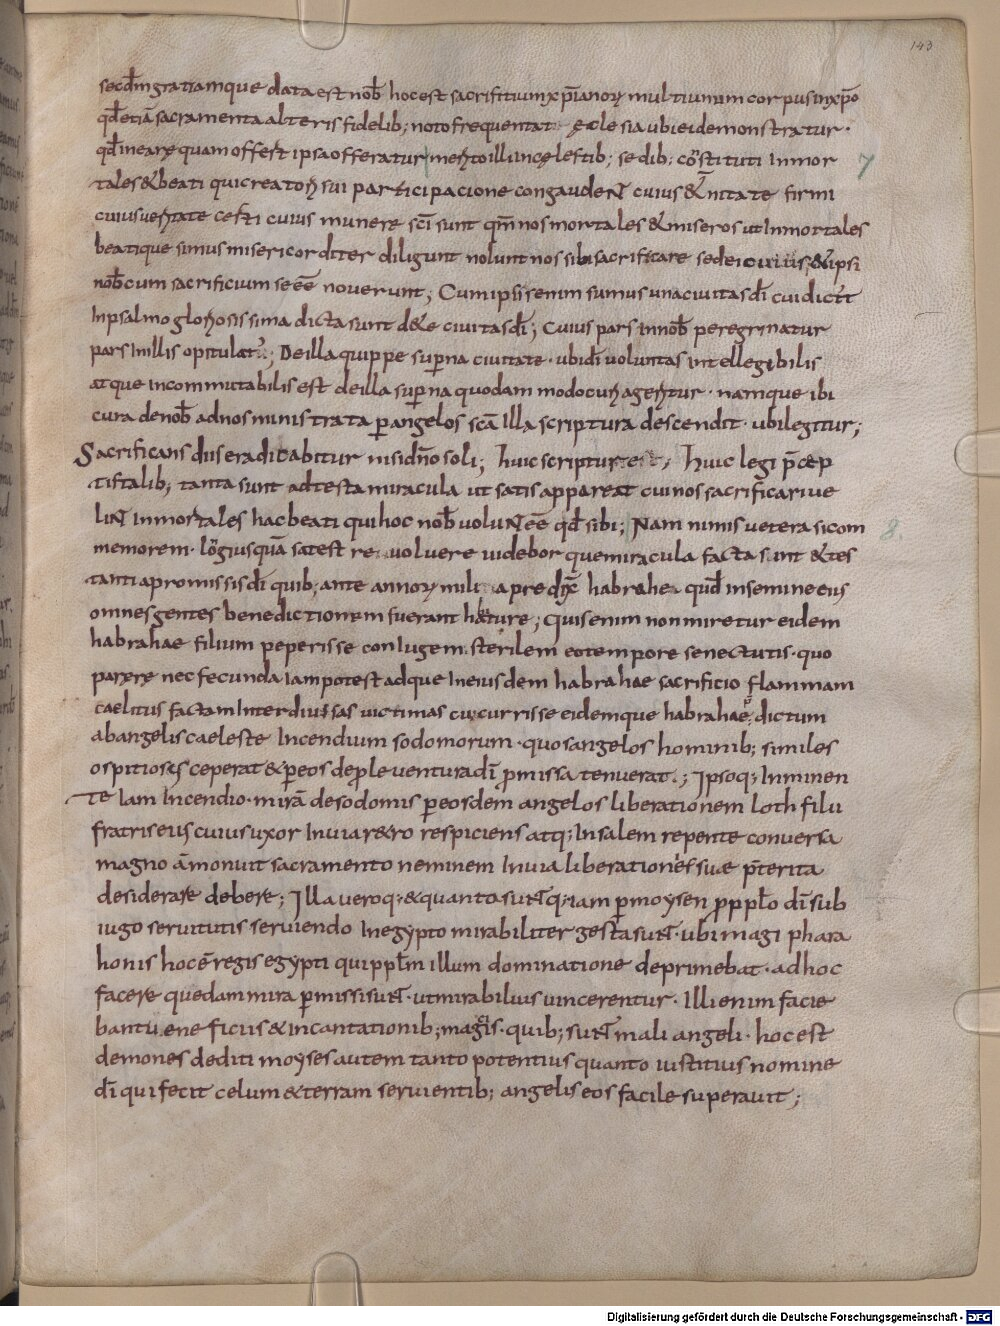 143
secdm gratiamque data est nob̄ hoc est sacrifitium xp̄ianoꝝ multi unum corpus in xp̄o
qd̄ etiā sacramenta alteris fidelib; noto frequentat ęclesia ubi ei demonstratur·
qd̄ in ea rę quam offert ipsa offeratur merito illi in cęlestib; sedib; cōstituti inmor 7
tales & beati qui creatoris sui participacione congaudent cuius &ernitate firmi
cuius ueritate certi cuius munere sc̄i sunt qm̄ nos mortales & miseros ut inmortales
beatique simus misericorditer diligunt nolunt nos sibi sacrificare sed ei cuius & ipsi
nob̄cum sacrificium se eē nouerunt; Cum ipsis enim sumus una ciuitas dī cui dicit
In psalmo gloriosissima dicta sunt de te ciuitas dī; Cuius pars in nob̄ peregrinatur
pars in illis opitulat:; De illa quippe suꝑna ciuitate· ubi dī uoluntas intellegibilis
atque incommutabilis est de illa suꝑna quodam modo curia geritur· namque ibi
cura de nob̄ ad nos ministrata ꝑ angelos scā illa scriptura descendit· ubi legitur;
Sacrificans diis eradicabitur nisi dn̄o soli; huic scripturę; huic legi p̄cep
tis talib; tanta sunt adtesta miracula ut satis appareat cui nos sacrificari ue
lint inmortales hac beati qui hoc nob̄ uolunt eē qd̄ sibi; Nam nimis uetera si com 8.
memorem· lōgius quā sat est reuoluere uidebor que miracula facta sunt &tes
tanti a promissis dī quib; ante annoꝝ milia predix̄ habrahę quod in semine eius
omnes gentes benedictionem fuerant habiture; Quis enim non miretur eidem
habrahae filium peperisse coniugem sterilem eo tempore senectutis· quo
parere nec fecunda iam potest adque in eiusdem habrahae sacrificio flammam
caelitus factam inter diuisas uictimas cucurrisse eidemque habrahae dictum
ab angelis caeleste incendium sodomorum· quos angelos hominib; similes
ospitio susceperat & ꝑ eos de ꝓle uentura dī ꝓmissa tenuerat.; Ipsoq; inminen
te iam incendio· mirā de sodomis ꝑ eosdem angelos liberationem loth filii
fratris eius cuius uxor in uia r&ro respiciens atq; in salem repente conuersa
magno āmonuit sacramento neminem in uia liberationis suę p̄terita
desiderare debere; Illa uero q; & quanta sunt q; iam ꝑ moysen ꝓ ppl̄o dī sub
iugo seruitutis seruiendo in egypto mirabiliter gesta sunt· ubi magi phara
honis hoc ē regis egypti qui ppl̄m illum dominatione deprimebat· ad hoc
facere quedam mira ꝑmissi sunt· ut mirabilius uincerentur· Illi enim facie
bant ueneficiis & incantationib; magicis· quib; sunt mali angeli· hoc est
demones dediti moyses autem tanto potentius quanto iustitius nomine
dī qui fecit celum & terram seruientib; angelis eos facile superauit;
Digitalisierung gefördert durch die Deutsche Forschungsgemeinschaft - DFG